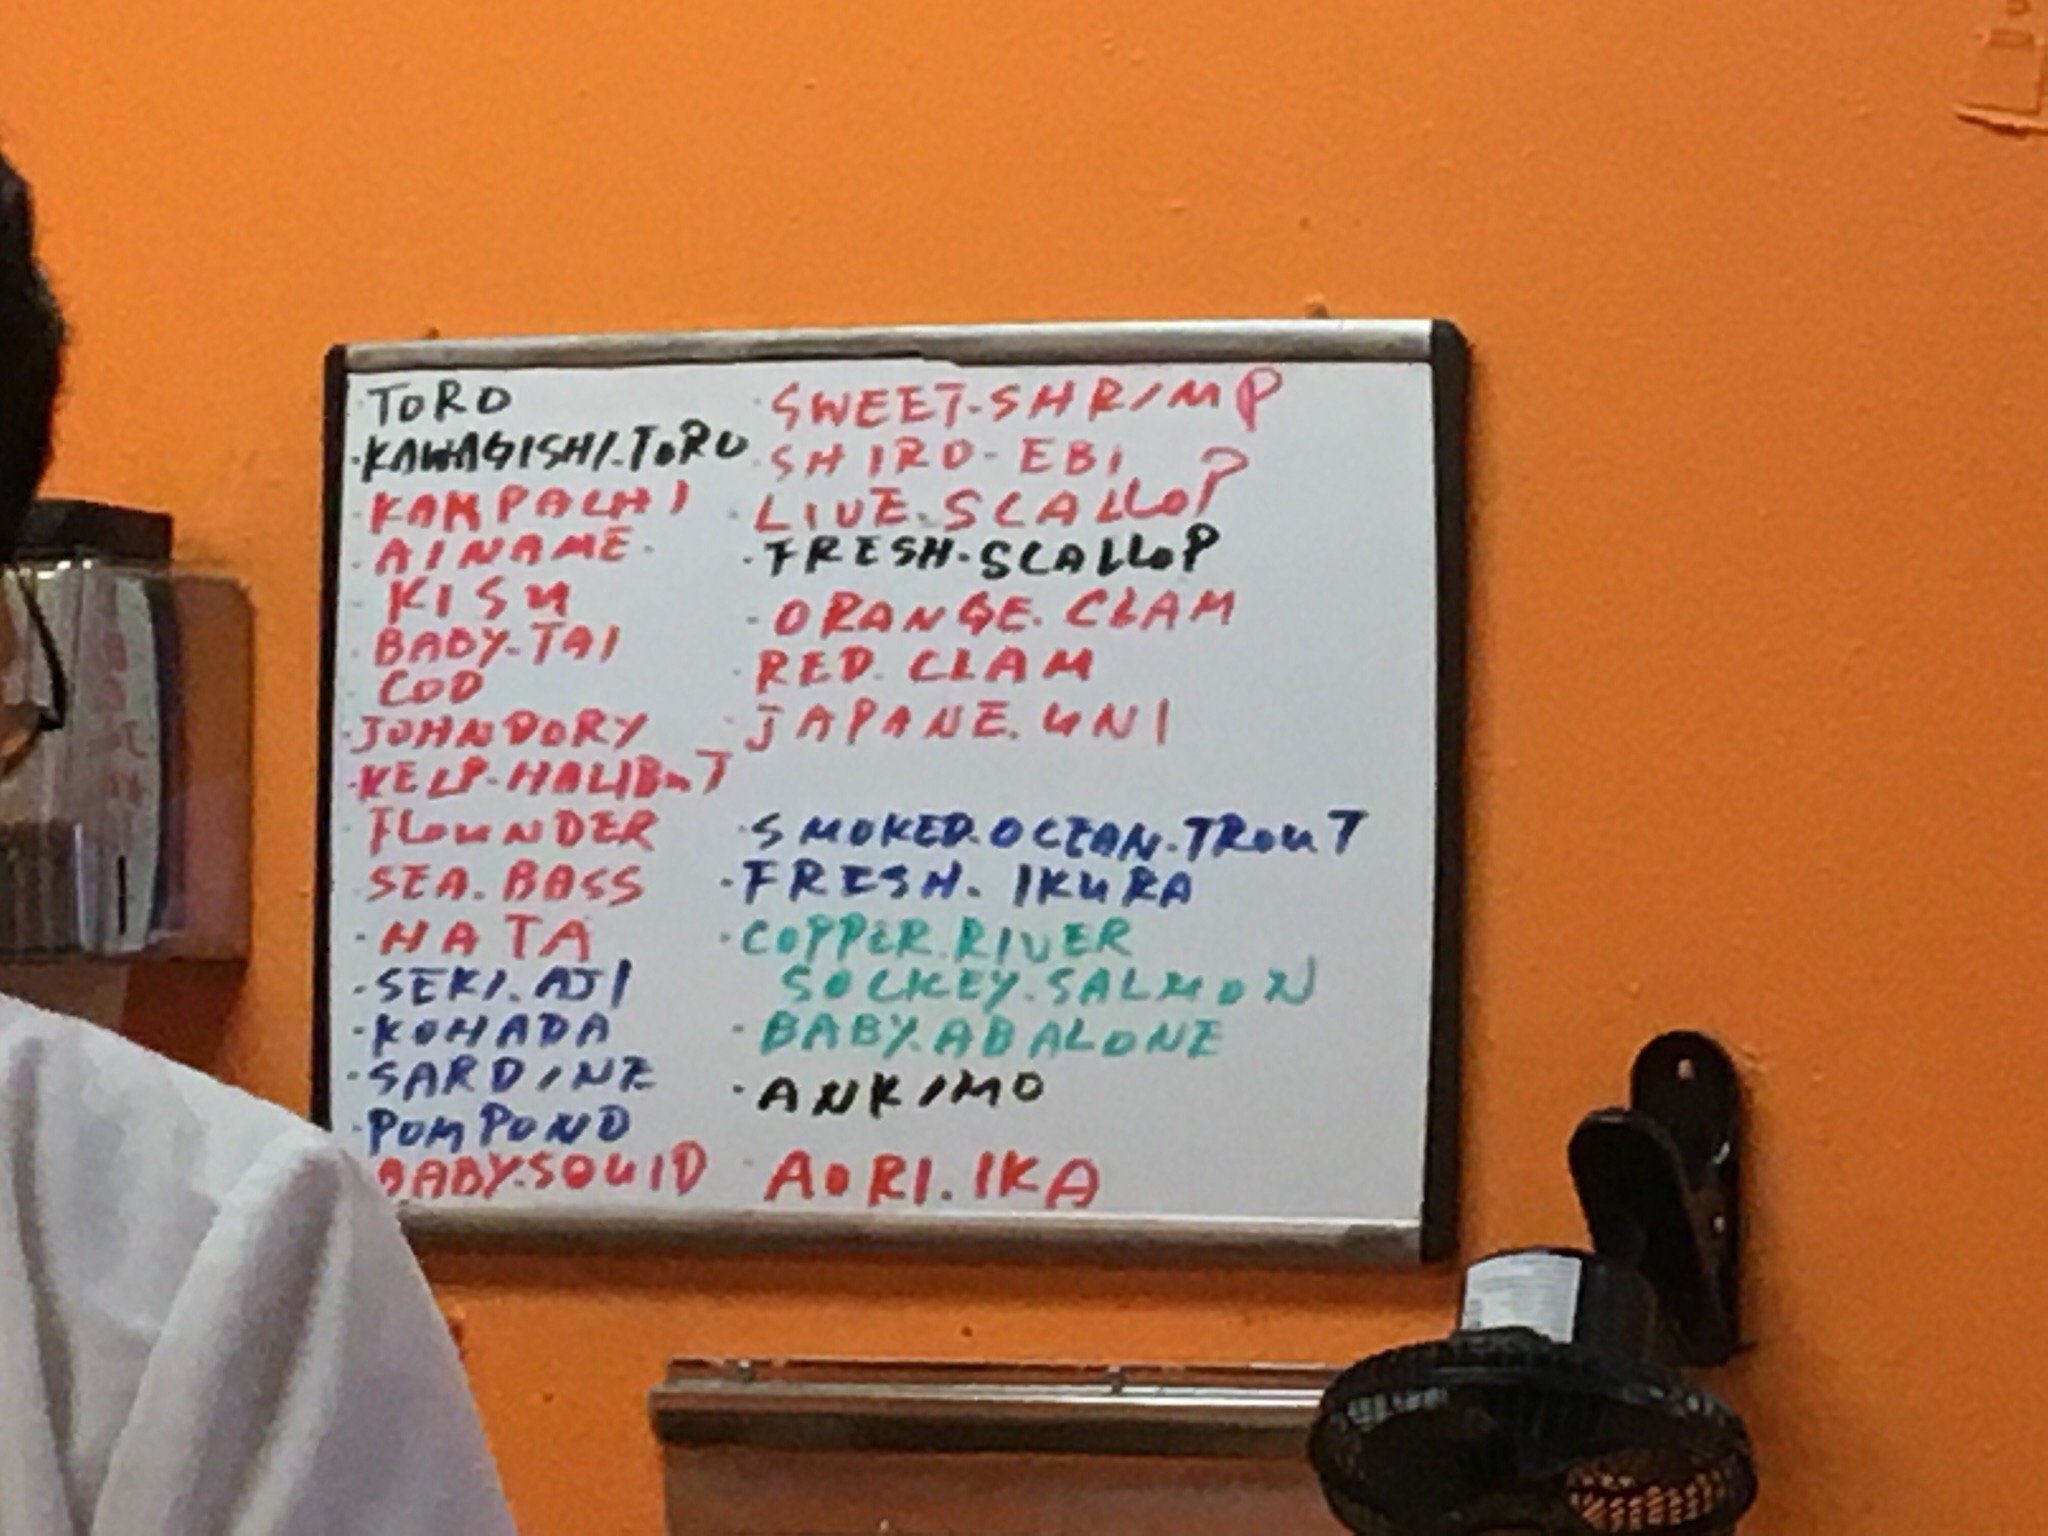 · TORO
· KAWAGISHI.TORO
· KAMPACHI
· AINAME.
· KISU
· BABY-TAI
· COD
· JOHNDORY
· KELP-HALIBUT
· FLOUNDER
· SEA.BASS
· HATA
· SEKI.AJI
· KOHADA
· SARDINE
· POMPONO
BABY.SQUID
· SWEET.SHRIMP
· SHIRO-EBI
· LIVE.SCALLOP
· FRESH.SCALLOP
· ORANGE.CLAM
· RED.CLAM
· JAPANE.UNI
· SMOKED.OCEAN.TROUT
· FRESH.IKURA
· COPPER.RIVER
SOCKEY.SALMON
· BABY.ABALONE
· ANKIMO
· AORI.IKA